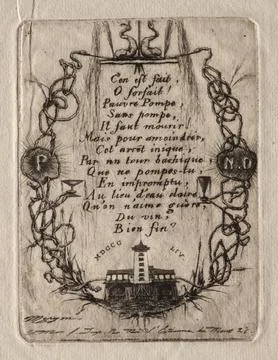 C'en est fait,
O forfait!
Pauvre Pompe,
Sans pompe,
Il faut mourir!
Mais pour amoindrir,
Cet arrêt inique,
Par un tour bachique,
Que ne pompes-tu,
En impromptu,
Au lieu d'eau claire,
Qu'on n'aime guère,
Du vin,
Bien fin?
P.
N.D
MDCCC
LIV.